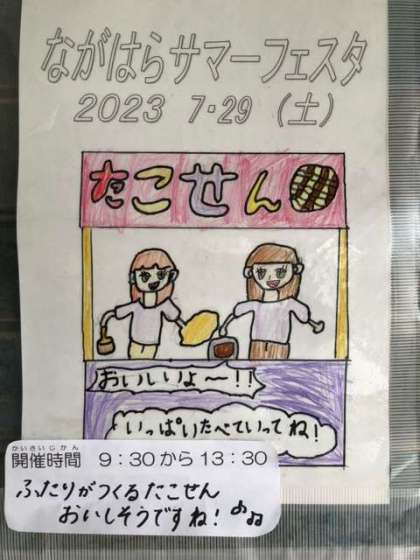 ながはらサマーフェスタ
2023 7・29 (土)
たこせん
おいしいよ〜!!
いっぱいたべていってね!
かいさいじかん
開催時間 9:30から13:30
ふたりがつくるたこせん
おいしそうですね!